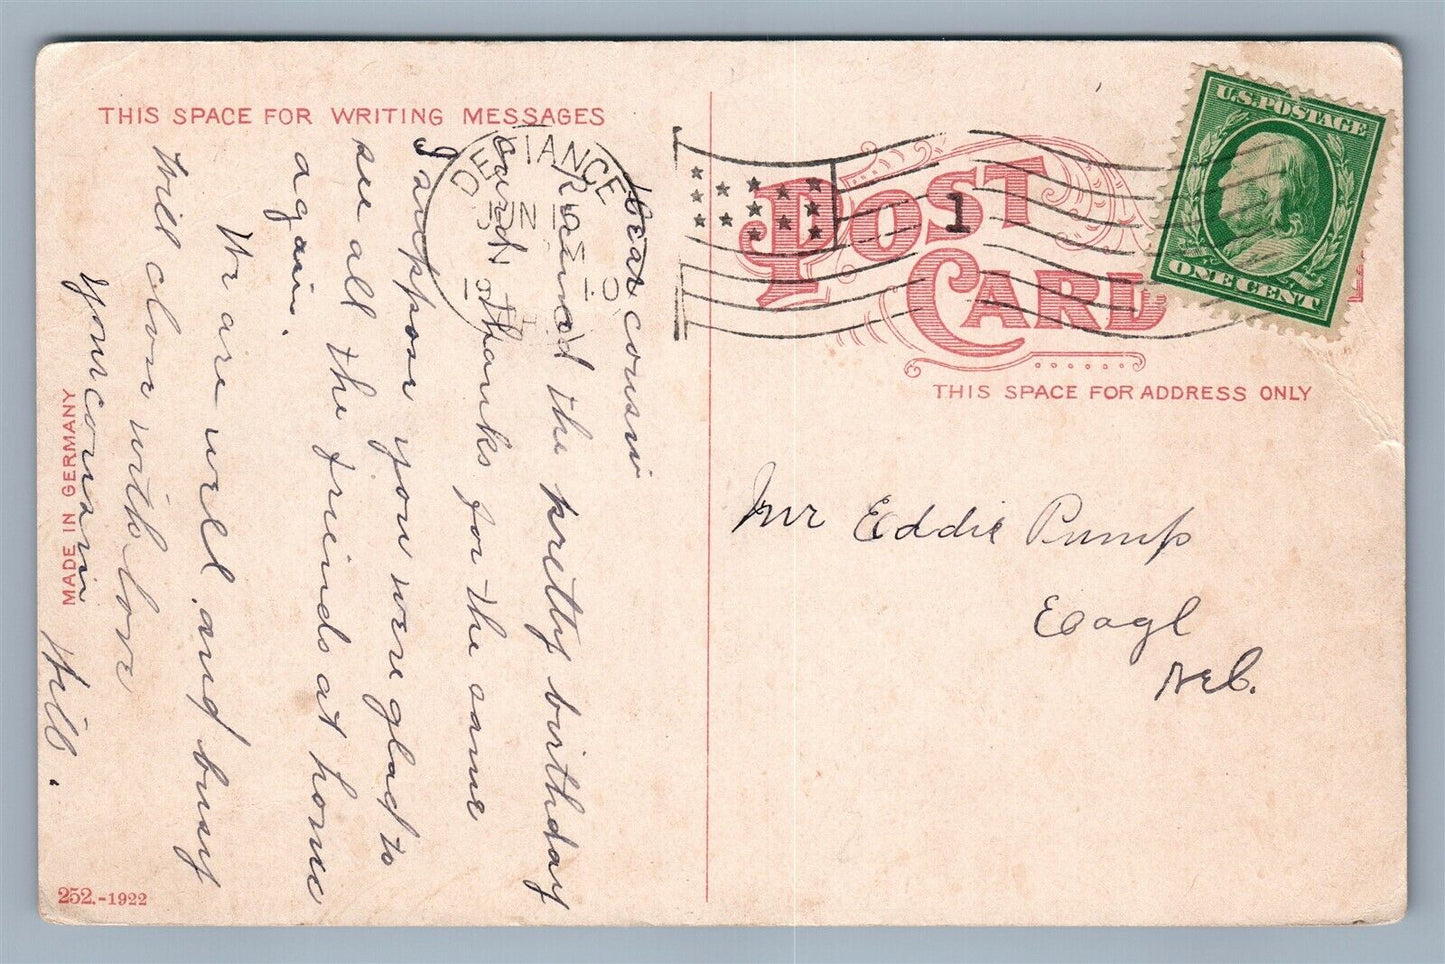 THIS SPACE FOR WRITING MESSAGES
Dear cousin
Rained the pretty birthday
card thanks for the same
I suppose you were glad to
see all the friends at home
again.
We are well and busy
Will close with love
Your cousin Will.
MADE IN GERMANY
252.-1922
DEFIANCE
JUN 15
1910
1
POST
CARD
U.S.POSTAGE
ONE CENT
THIS SPACE FOR ADDRESS ONLY
Mr Eddie Pump
Eagl
Neb.